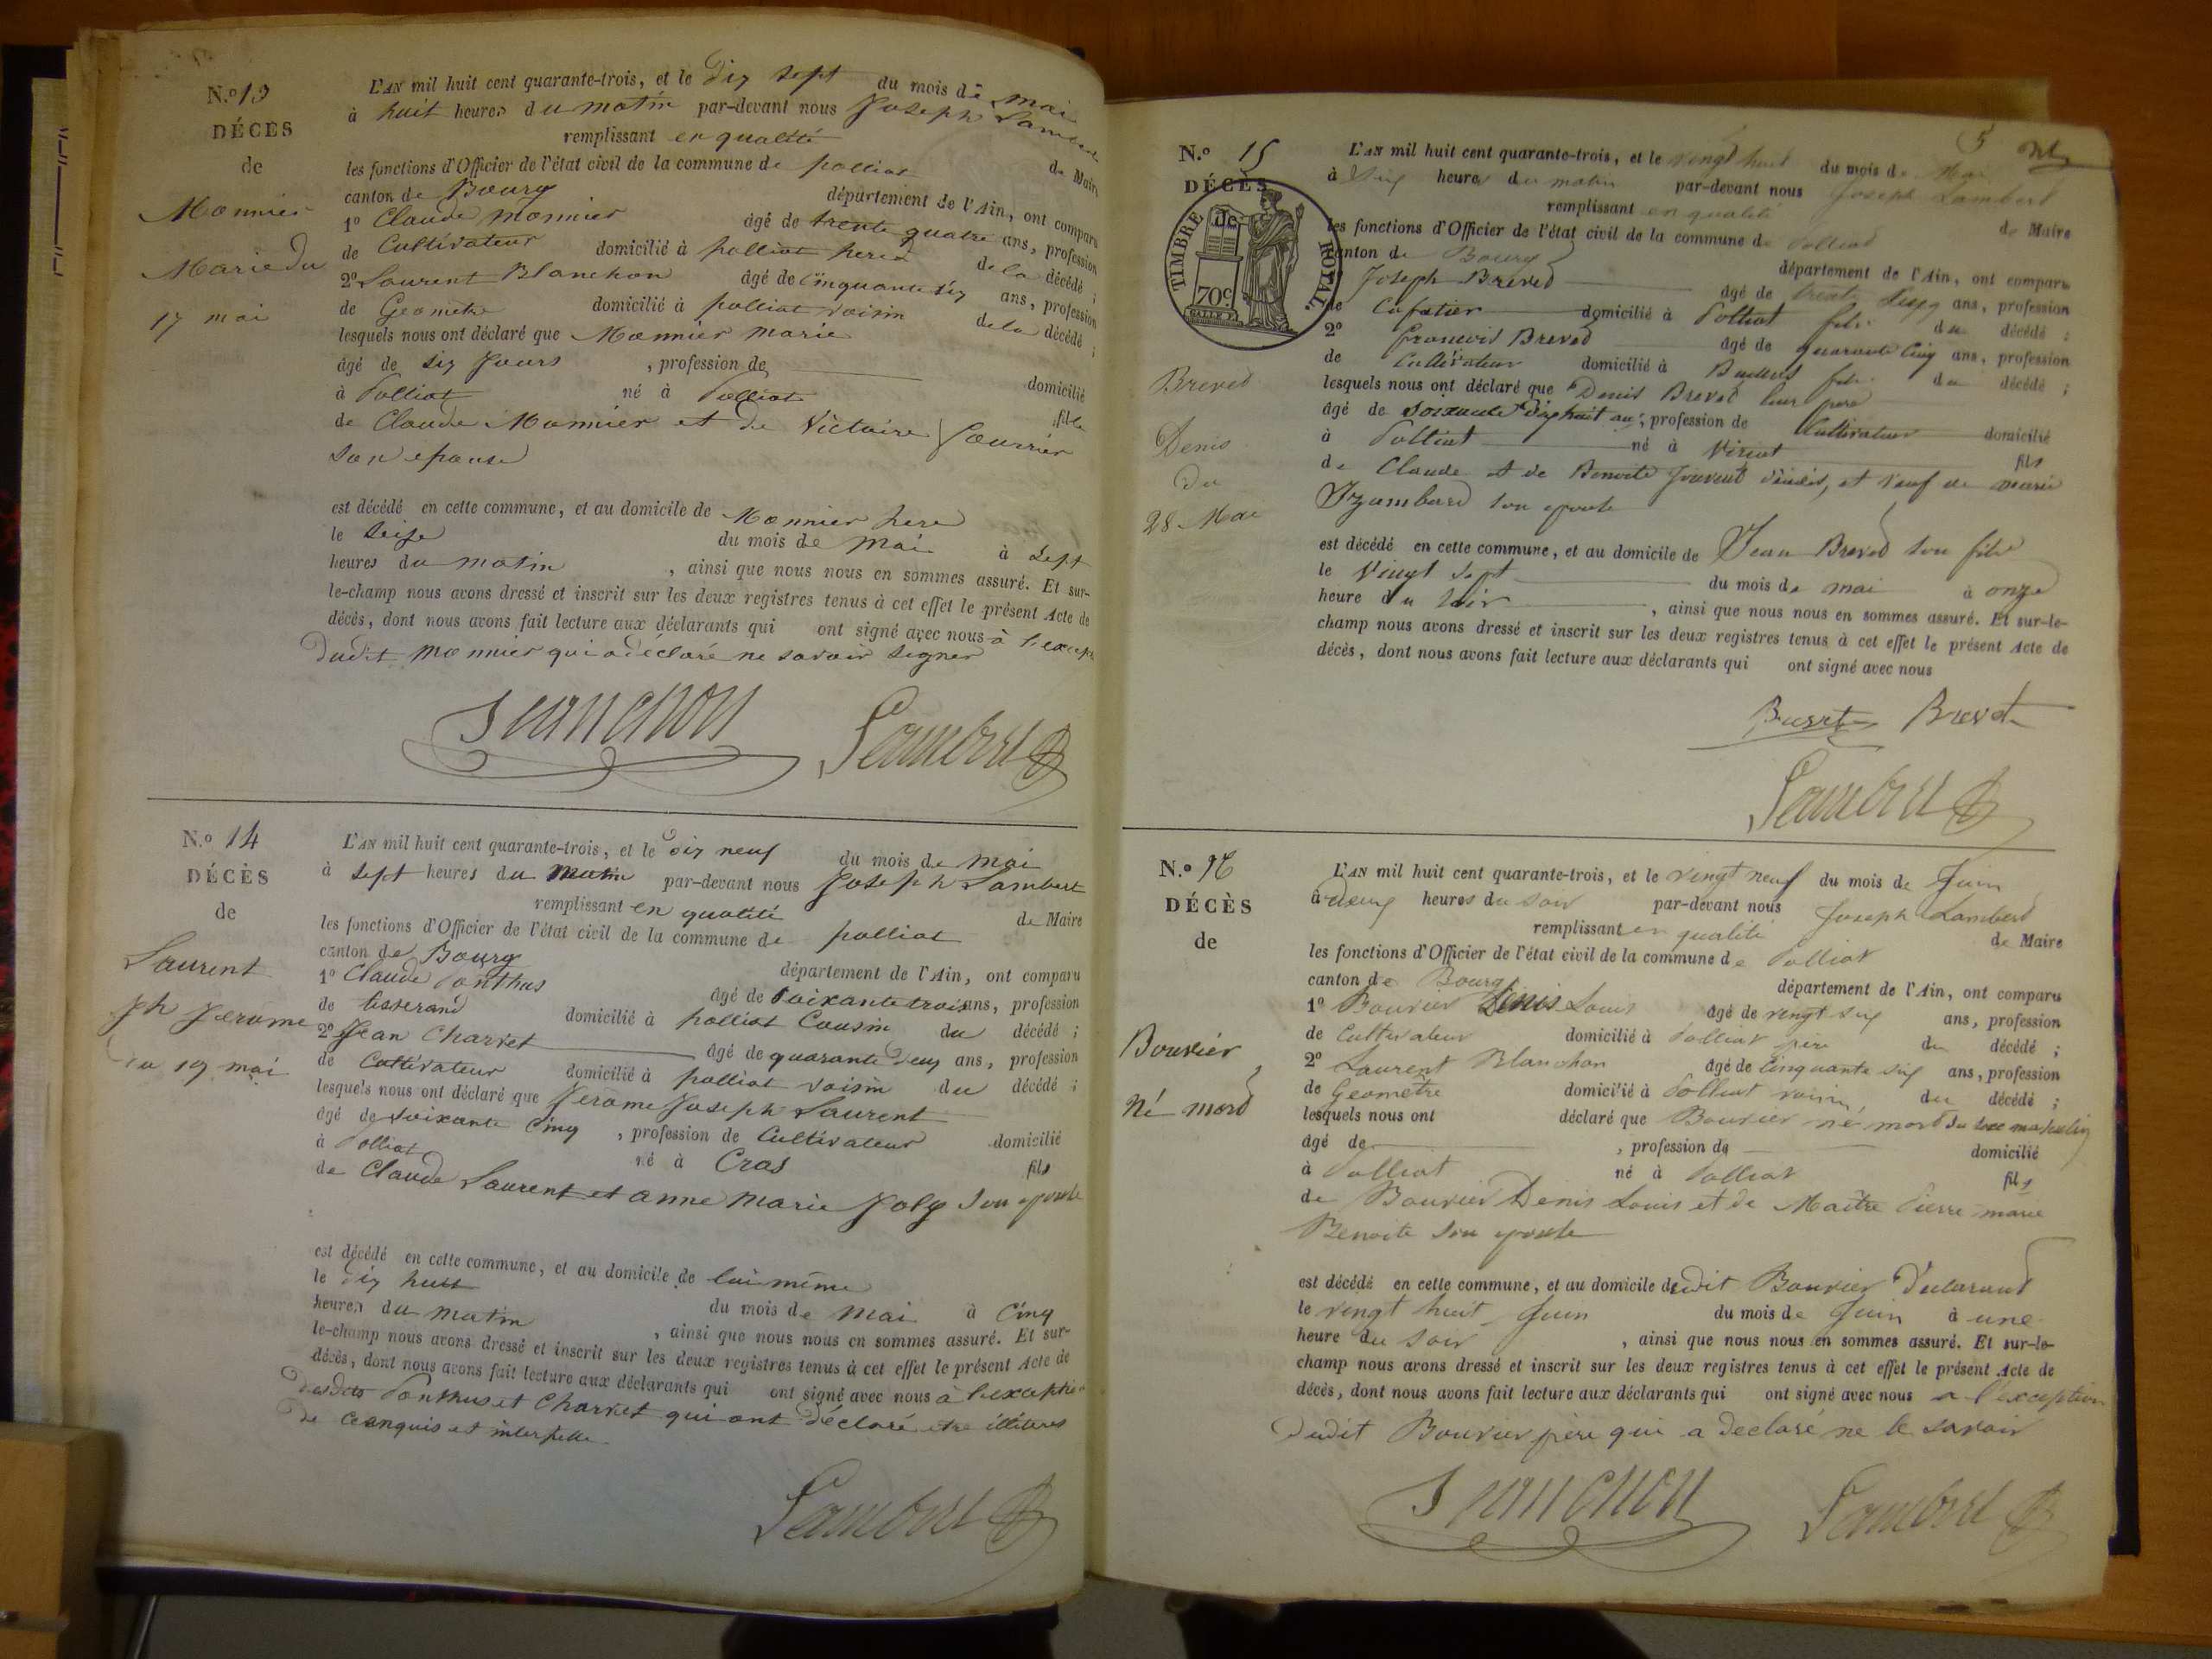 N.º 13
DÉCÈS
de
Monnier
Marie du
17 mai
L'AN mil huit cent quarante-trois, et le dix sept du mois de mai
à huit heures du matin par-devant nous Joseph Lambert
remplissant en qualité de Maire
les fonctions d'Officier de l'état civil de la commune de polliat
canton de Bourg département de l'Ain, ont comparu
1º Claude Monnier âgé de trente quatre ans, profession
de Cultivateur domicilié à polliat pere de la décédé ;
2º Laurent Blanchon âgé de cinquante six ans, profession
de Geometre domicilié à polliat voisin de la décédé ;
lesquels nous ont déclaré que Monnier marie
âgé de six Jours , profession de domicilié
à Polliat né à Polliat fille
de Claude Monnier et de Victoire
son epouse
est décédé en cette commune, et au domicile de Monnier pere
le seize du mois de mai à sept
heures du matin , ainsi que nous nous en sommes assuré. Et sur-
le-champ nous avons dressé et inscrit sur les deux registres tenus à cet effet le présent Acte de
décès, dont nous avons fait lecture aux déclarants qui ont signé avec nous à l'except
dudit Monnier qui a déclaré ne savoir signer
Blanchon Lambert
N.º 14
DÉCÈS
de
Laurent
ph Jerome
du 19 mai
L'AN mil huit cent quarante-trois, et le dix neuf du mois de mai
à sept heures du matin par-devant nous Joseph Lambert
remplissant en qualité de Maire
les fonctions d'Officier de l'état civil de la commune de polliat
canton de Bourg département de l'Ain, ont comparu
1º Claude Ponthus âgé de soixante trois ans, profession
de tisserand domicilié à polliat Cousin du décédé ;
2º Jean Charvet âgé de quarante deux ans, profession
de Cultivateur domicilié à polliat voisin du décédé ;
lesquels nous ont déclaré que Jerome Joseph Laurent
âgé de soixante Cinq , profession de Cultivateur domicilié
à Polliat né à Cras fils
de Claude Laurent et anne Marie Joly son epouse
est décédé en cette commune, et au domicile de lui même
le dix huit du mois de mai à Cinq
heures du matin , ainsi que nous nous en sommes assuré. Et sur-
le-champ nous avons dressé et inscrit sur les deux registres tenus à cet effet le présent Acte de
décès, dont nous avons fait lecture aux déclarants qui ont signé avec nous à l'exception
desdits Ponthus et Charvet qui ont déclaré etre illiteres
de ce enquis et interpellé
Lambert
5
N.º 15
DÉCÈS
de
TIMBRE ROYAL
70c
Brevet
Denis
du
28 Mai
L'AN mil huit cent quarante-trois, et le vingt huit du mois de Mai
à six heures du matin par-devant nous Joseph Lambert
remplissant en qualité de Maire
les fonctions d'Officier de l'état civil de la commune de Polliat
canton de Bourg département de l'Ain, ont comparu
Joseph Brevet âgé de ans, profession
de Cafetier domicilié à Polliat fils du décédé ;
2º Francois Brevet âgé de quarante Cinq ans, profession
de Cultivateur domicilié à fils du décédé ;
lesquels nous ont déclaré que Denis Brevet leur pere
âgé de soixante dix huit ans, profession de Cultivateur domicilié
à Polliat né à Viriat fils
de Claude et de Benoite décédés, et veuf de marie
Izambard son epouse
est décédé en cette commune, et au domicile de Jean Brevet son fils
le Vingt sept du mois de mai à onze
heure du soir , ainsi que nous nous en sommes assuré. Et sur-le-
champ nous avons dressé et inscrit sur les deux registres tenus à cet effet le présent Acte de
décès, dont nous avons fait lecture aux déclarants qui ont signé avec nous
Brevet Brevet
Lambert
N.º 16
DÉCÈS
de
Bouvier
Né mord
L'AN mil huit cent quarante-trois, et le vingt neuf du mois de Juin
à deux heures du soir par-devant nous Joseph Lambert
remplissant en qualité de Maire
les fonctions d'Officier de l'état civil de la commune de Polliat
canton de Bourg département de l'Ain, ont comparu
1º Bouvier Denis Louis âgé de vingt six ans, profession
de Cultivateur domicilié à Polliat pere du décédé ;
2º Laurent Blanchon âgé de Cinquante six ans, profession
de Geometre domicilié à Polliat voisin du décédé ;
lesquels nous ont déclaré que Bouvier né mort du sexe masculin
âgé de , profession de domicilié
à Polliat né à Polliat fils
de Bouvier Denis Louis et de Maitre Pierre marie
Benoite son epouse
est décédé en cette commune, et au domicile dudit Bouvier Declarant
le vingt huit Juin du mois de Juin à une
heure du soir , ainsi que nous nous en sommes assuré. Et sur-le-
champ nous avons dressé et inscrit sur les deux registres tenus à cet effet le présent Acte de
décès, dont nous avons fait lecture aux déclarants qui ont signé avec nous a l'exception
dudit Bouvier père qui a declaré ne le savoir
Blanchon Lambert